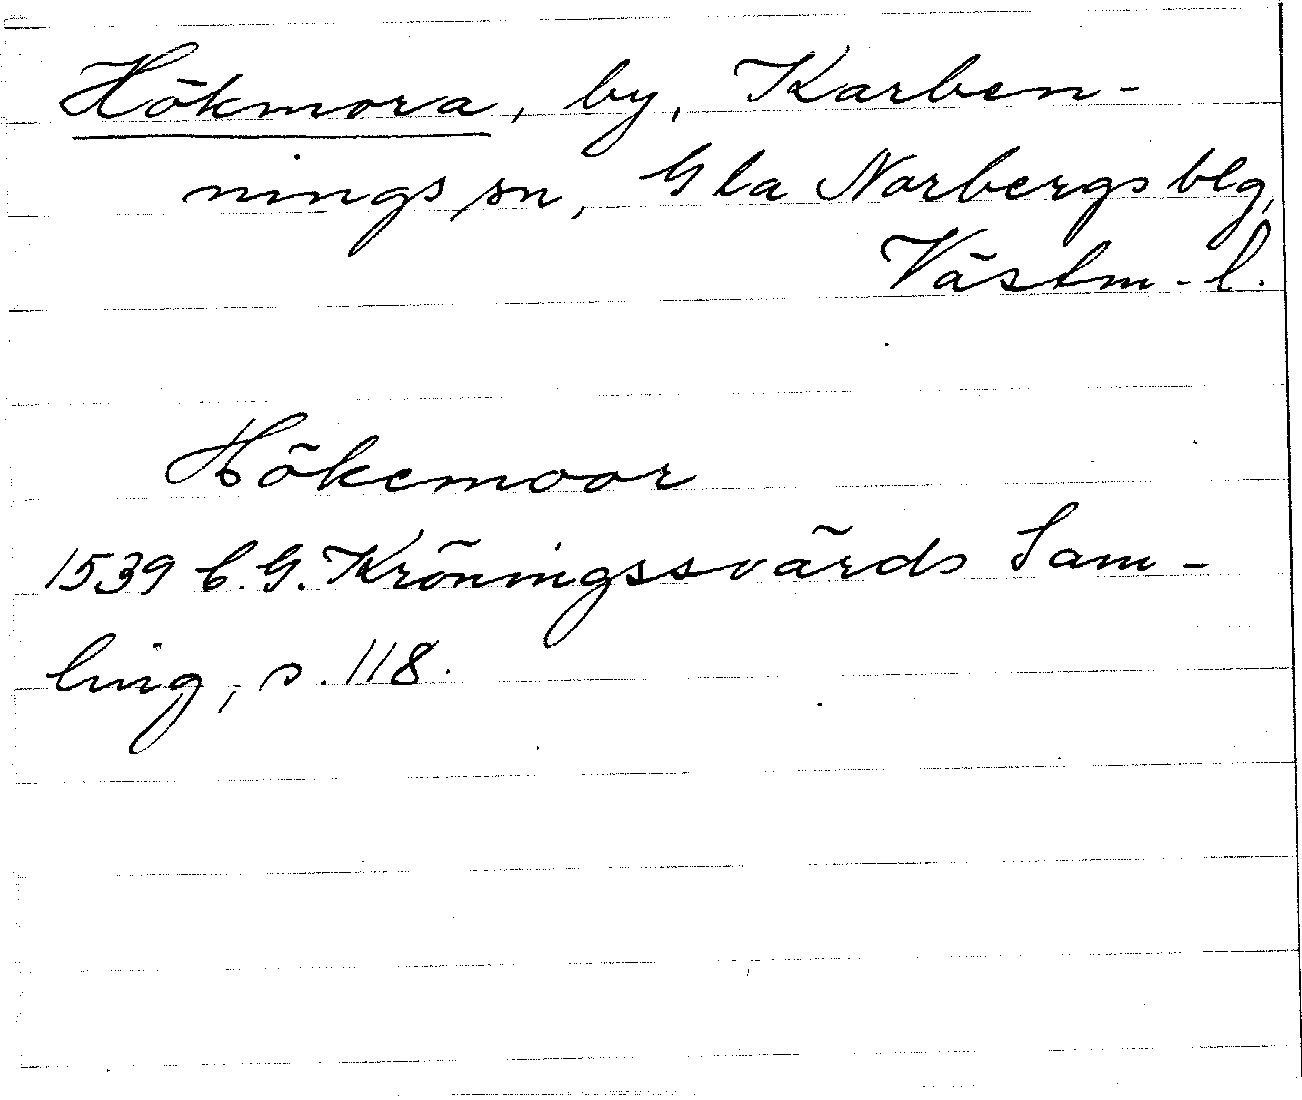 Hökmora, by, Karben-
nings sn, Gla Norbergs blg,
Västm-l.
Hökemoor
1539 C.G. Kröningssvärds Sam-
ling, s. 118.